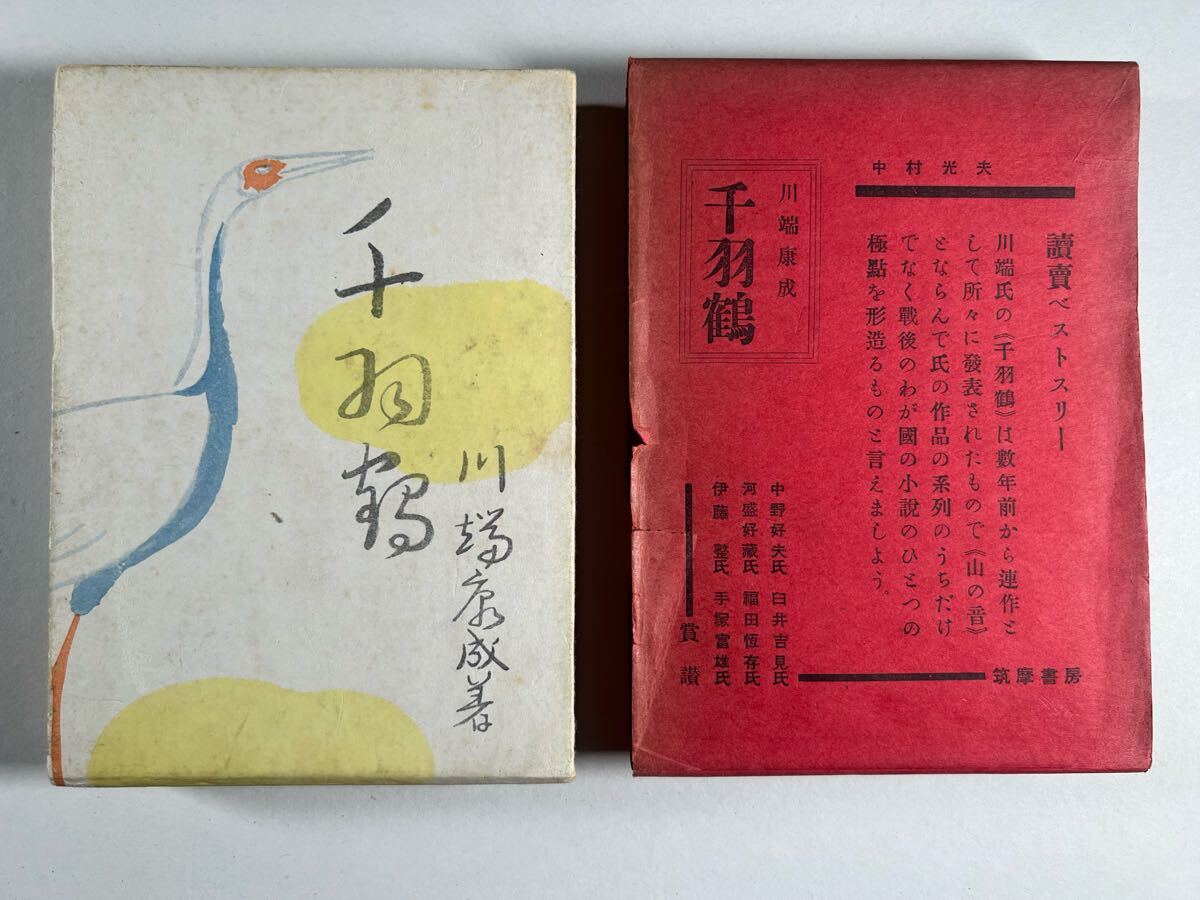 千羽鶴
川端康成著
中村光夫
讀賣ベストスリー
川端氏の《千羽鶴》は數年前から連作と
して所々に發表されたもので《山の音》
とならんで氏の作品の系列のうちだけ
でなく戰後のわが國の小說のひとつの
極點を形造るものと言えましよう。
川端康成
千羽鶴
中野好夫氏 臼井吉見氏
河盛好藏氏 福田恆存氏
伊藤 整氏 手塚富雄氏
賞讃
筑摩書房